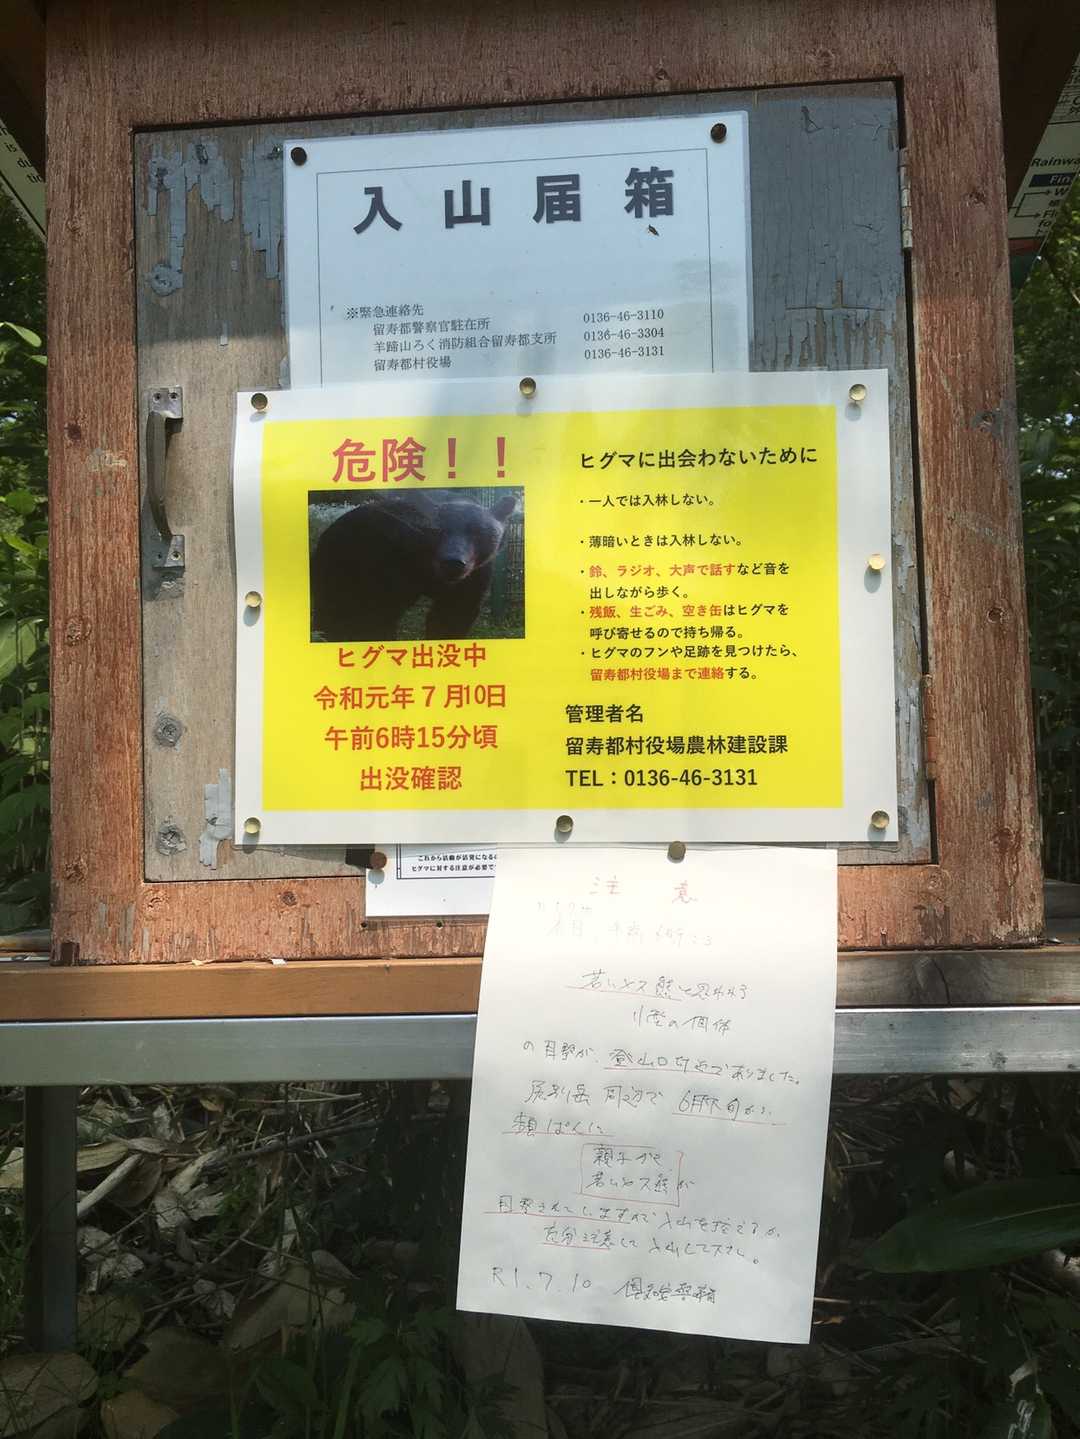 入山届箱
※緊急連絡先
留寿都警察官駐在所 0136-46-3110
羊蹄山ろく消防組合留寿都支所 0136-46-3304
留寿都村役場 0136-46-3131
危険！！
ヒグマ出没中
令和元年７月10日
午前6時15分頃
出没確認
ヒグマに出会わないために
・一人では入林しない。
・薄暗いときは入林しない。
・鈴、ラジオ、大声で話すなど音を
出しながら歩く。
・残飯、生ごみ、空き缶はヒグマを
呼び寄せるので持ち帰る。
・ヒグマのフンや足跡を見つけたら、
留寿都村役場まで連絡する。
管理者名
留寿都村役場農林建設課
TEL：0136-46-3131
これから活動が活発になるの
ヒグマに対する注意が必要で
注意
若いメス熊と思われる
小型の個体
の目撃が、登山口付近でありました。
尻別岳周辺で 6月下旬から
頻ぱんに
親子やや
若いメス熊が
目撃されていますので入山を控えるか、
充分注意して入山して下さい。
R1.7.10 倶知安警察署
Rainwa
Fin